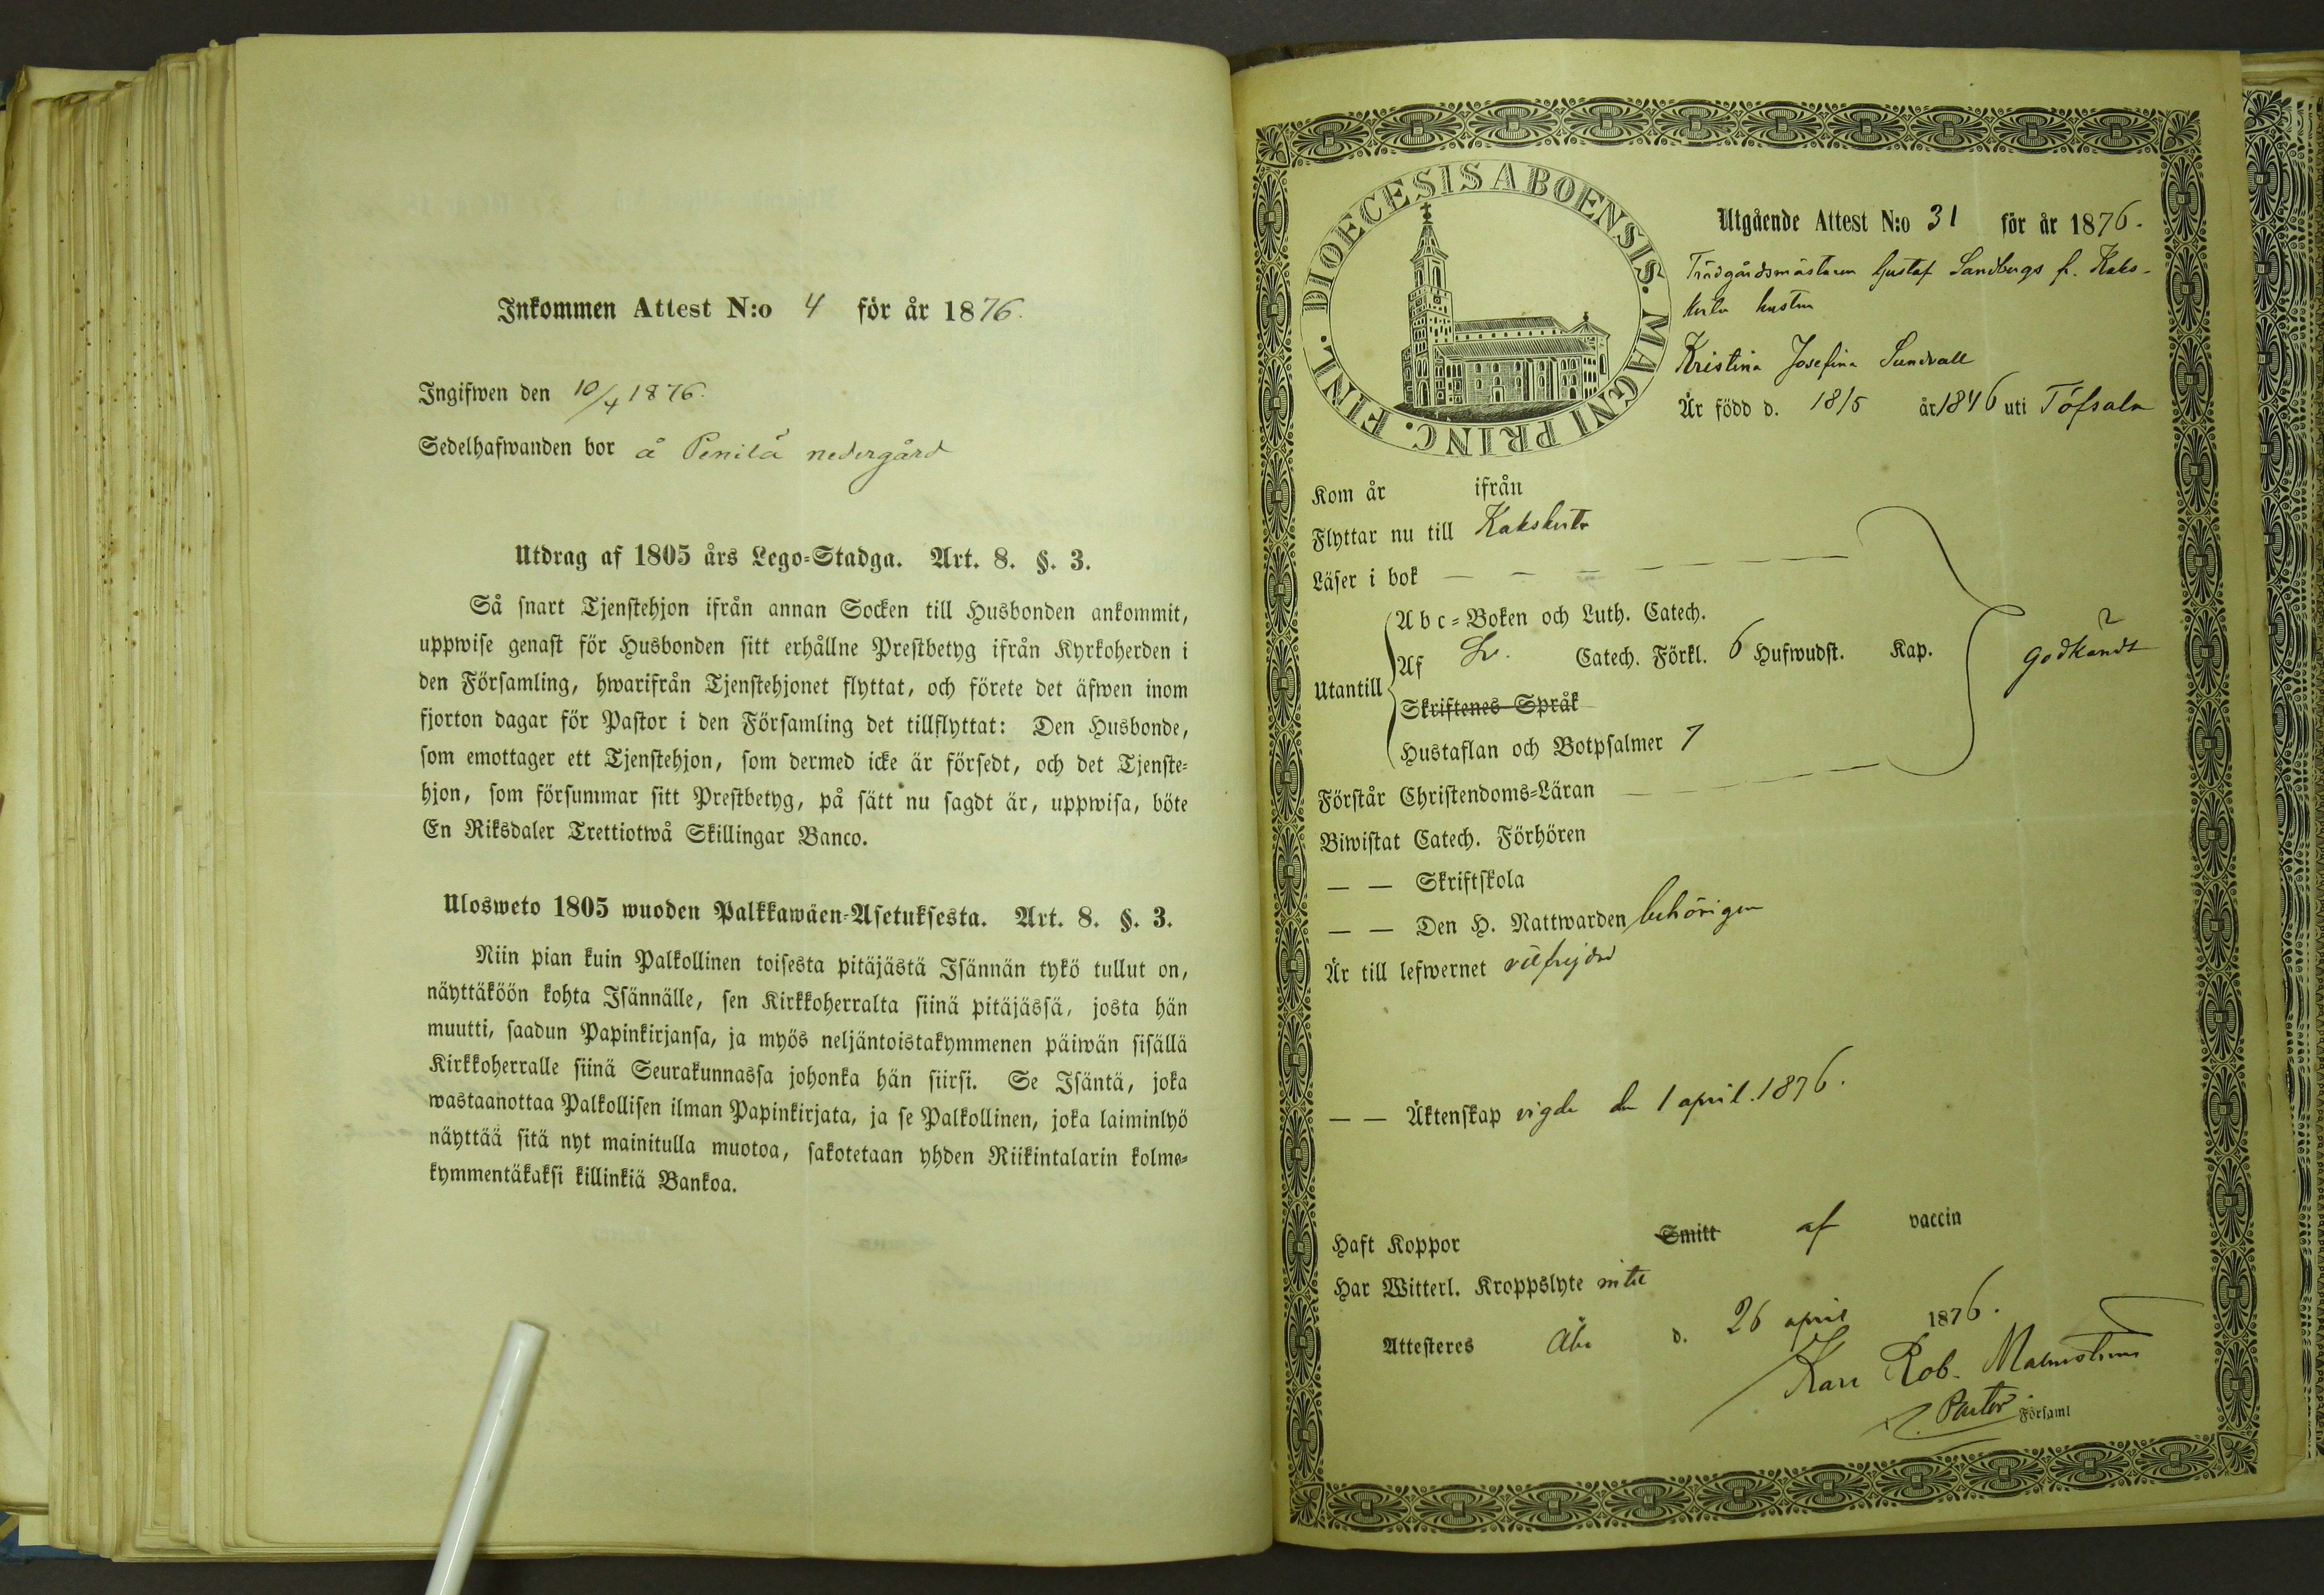 Inkommen Attest N:o 4 för år 1876.
Ingifwen den 10/4 1876.
Sedelhafwanden bor å Penilä nedergård
Utdrag af 1805 års Lego-Stadga. Art. 8. §. 3.
Så snart Tjenstehjon ifrån annan Socken till Husbonden ankommit,
uppwise genast för Husbonden sitt erhållne Prestbetyg ifrån Kyrkoherden i
den Församling, hwarifrån Tjenstehjonet flyttat, och förete det äfwen inom
fjorton dagar för Pastor i den Församling det tillflyttat: Den Husbonde,
som emottager ett Tjenstehjon, som dermed icke är försedt, och det Tjenste-
hjon, som försummar sitt Prestbetyg, på sätt nu sagdt är, uppwisa, böte
En Riksdaler Trettiotwå Skillingar Banco.
Ulosweto 1805 wuoden Palkkawäen-Asetuksesta. Art. 8. §. 3.
Niin pian kuin Palkollinen toisesta pitäjästä Isännän tykö tullut on,
näyttäköön kohta Isännälle, sen Kirkkoherralta siinä pitäjässä, josta hän
muutti, saadun Papinkirjansa, ja myös neljäntoistakymmenen päiwän sisällä
Kirkkoherralle siinä Seurakunnassa johonka hän siirsi. Se Isäntä, joka
wastaanottaa Palkollisen ilman Papinkirjata, ja se Palkollinen, joka laiminlyö
näyttää sitä nyt mainitulla muotoa, sakotetaan yhden Riikintalarin kolme-
kymmentäkaksi killinkiä Bankoa.
DIOECESIS ABOENSIS. MAGNI PRINC. FINL.
Utgående Attest N:o 31 för år 1876.
Trädgårdsmästaren Gustaf Sandbergs fr. Kaks-
kerta hustru
Kristina Josefina Sundvall
Är född d. 18/5 år 1846 uti Töfsala
Kom år ifrån
Flyttar nu till Kakskerta
Läser i bok — — — — — —
Utantill
Abc-Boken och Luth. Catech.
Af Sv. Catech. Förkl. 6 Hufwudst. Kap.
Skriftenes Språk
Hustaflan och Botpsalmer 7
godkändt
Förstår Christendoms-Läran
Biwistat Catech. Förhören
— — Skriftskola
— — Den H. Nattwarden behörigen
Är till lefwernet välfrejdad
— — Äktenskap vigde den 1 april. 1876.
Haft Koppor Smitt af vaccin
Har Witterl. Kroppslyte intet
Attesteres Åbo d. 26 april 1876.
Karl Rob. Malmström
Pastor Församl